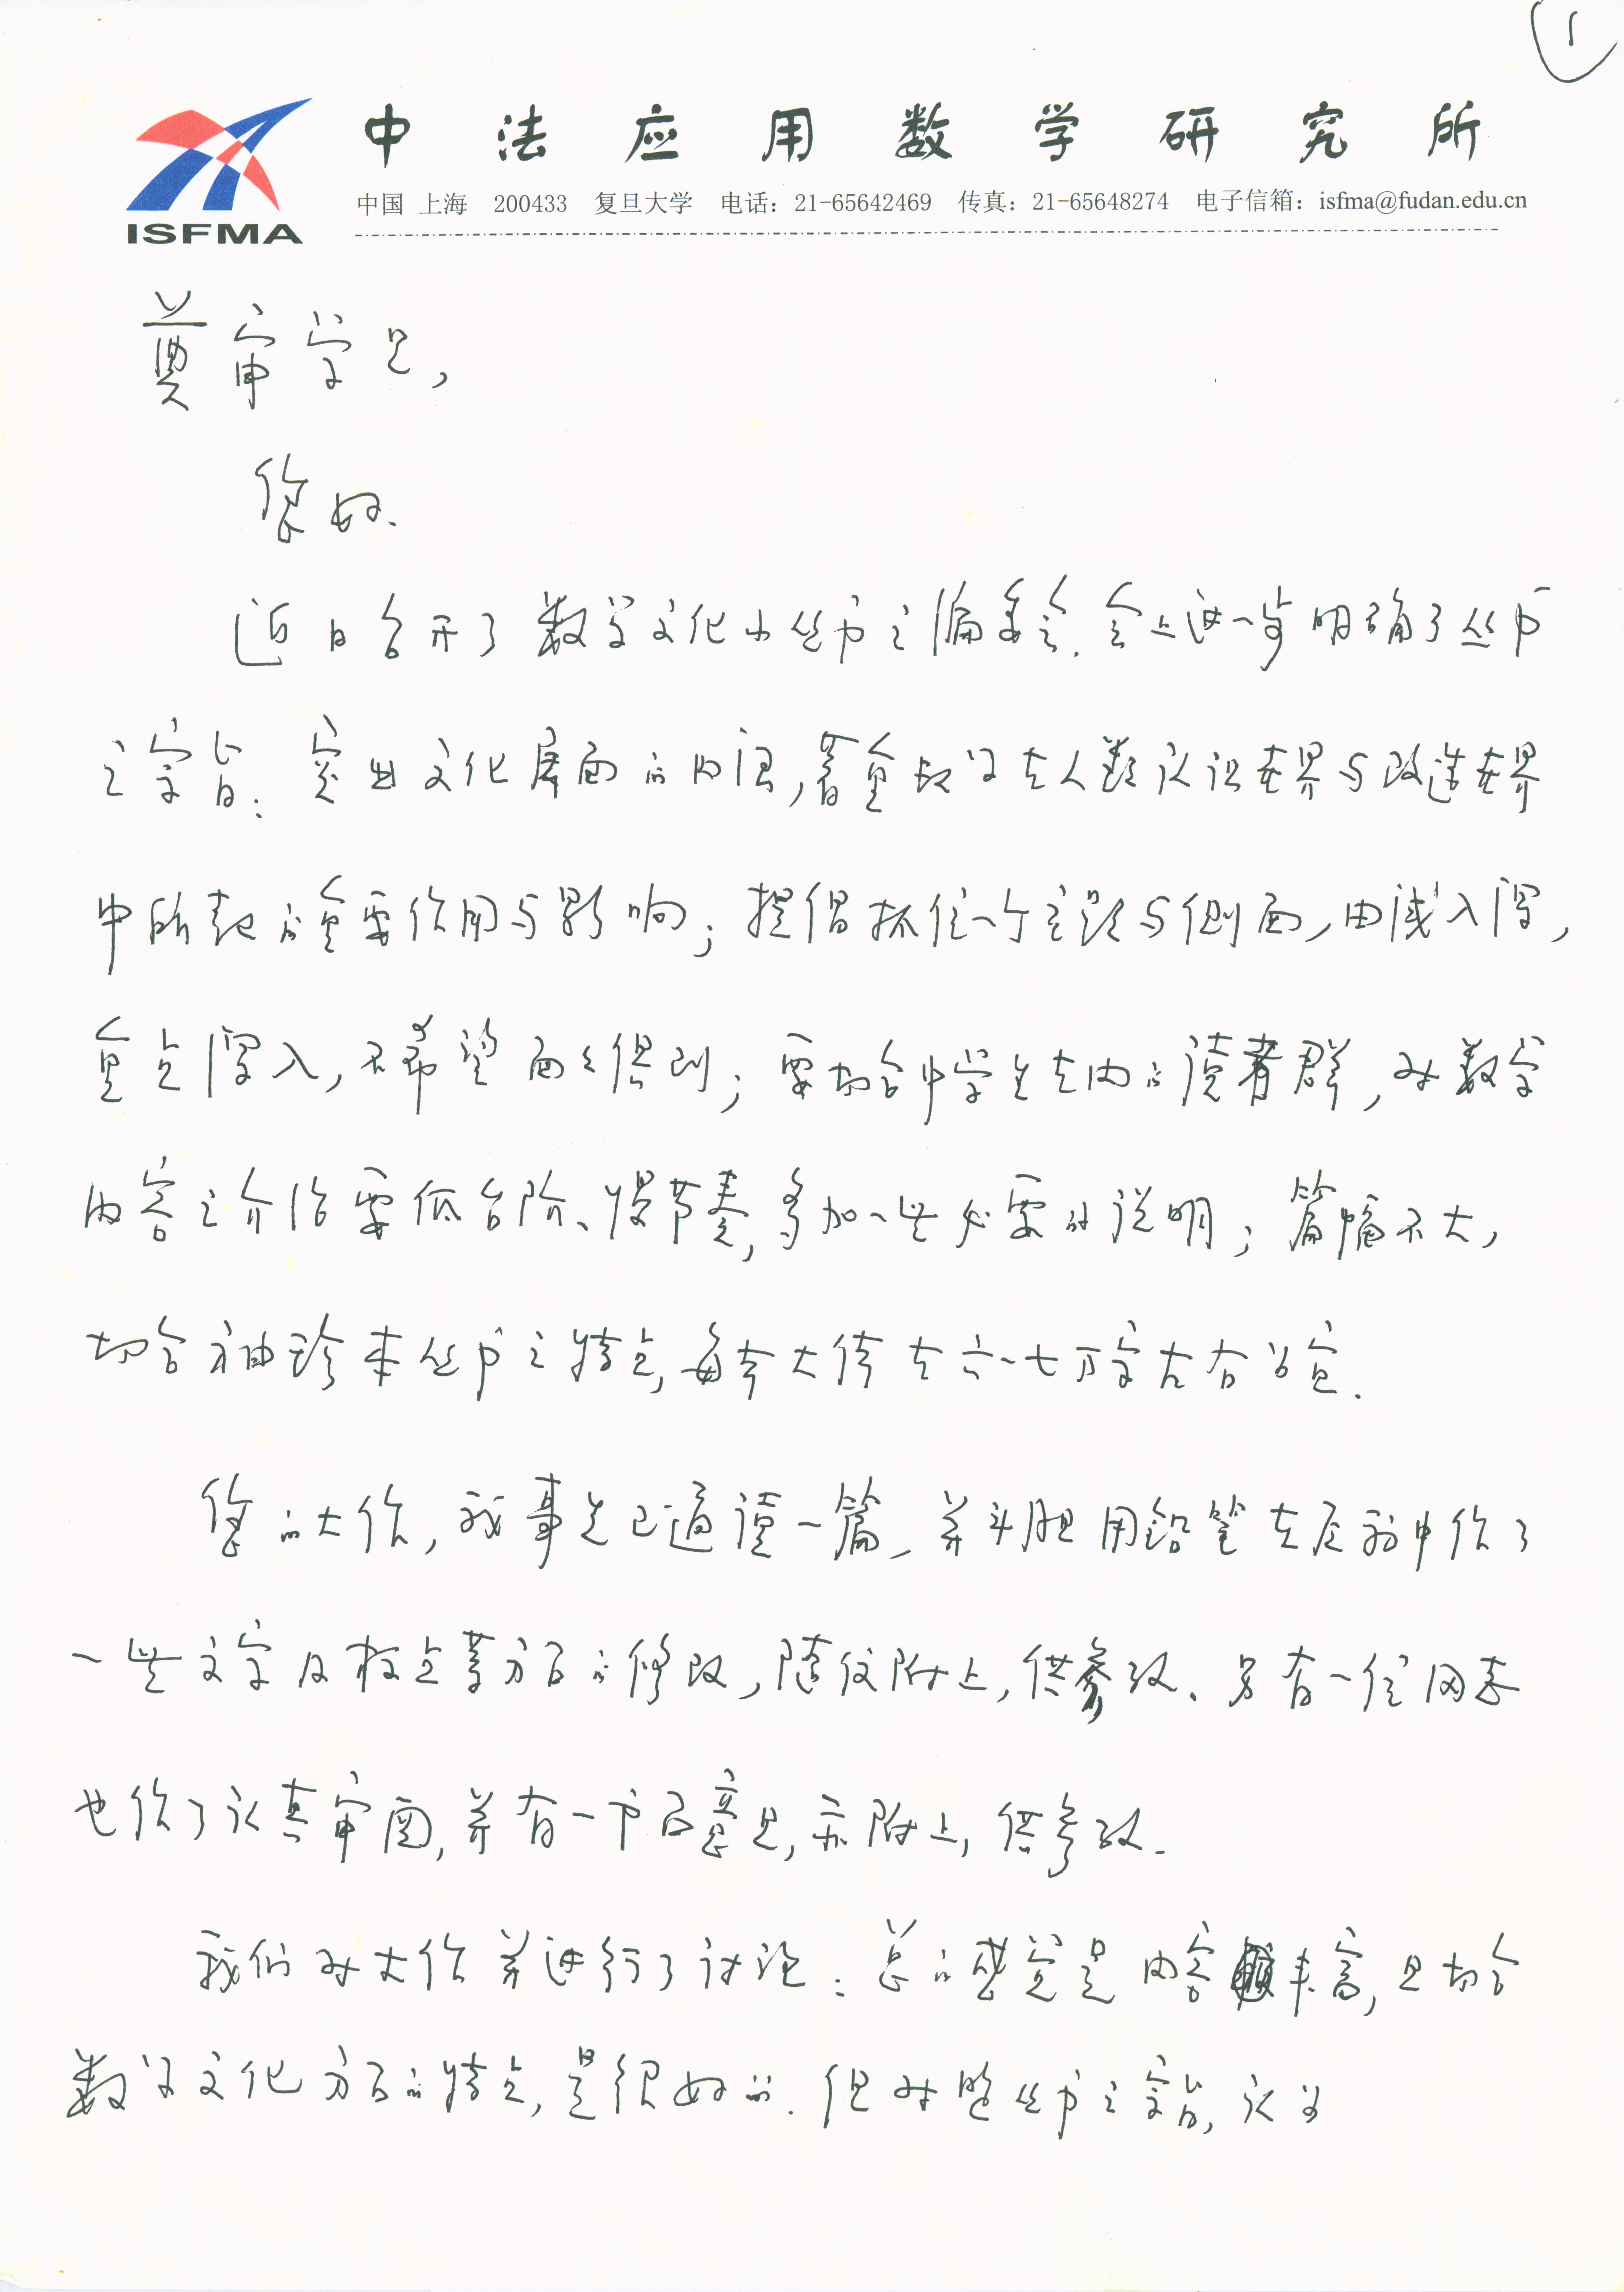 1
中法应用数学研究所
中国 上海 200433 复旦大学 电话：21-65642469 传真：21-65648274 电子信箱：isfma@fudan.edu.cn
ISFMA
奠宙学兄，
您好.
近日召开了数学文化小丛书之编委会. 会上进一步明确了丛书
之宗旨：突出文化层面的内涵，着重数学在人类认识世界与改造世界
中所起的重要作用与影响；提倡抓住一个主题与侧面，由浅入深，
重点深入，不希望面面俱到；要切合中学生在内的读者群，对数学
内容之介绍要低台阶、慢节奏，多加一些必要的说明；篇幅不大，
切合袖珍本丛书之特点，每本大体在六一七万字左右为宜.
您的大作，我事先已通读一篇，并斗胆用铅笔在原稿中作了
一些文字及标点等方面的修改，随信附上，供参考. 另有一位同志
也作了认真审阅，并有一书面意见，亦附上，供参考.
我们对大作并进行了讨论：总的感觉是内容丰富，且切合
数学文化方面的特点，是很好的. 但对照丛书之宗旨，认为